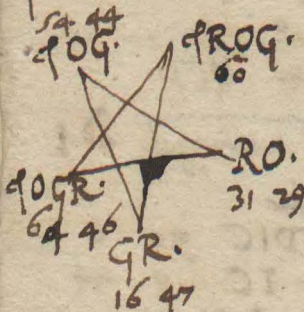 54 44
ꝯOG.
ꝯROG.
60
RO.
31 29
ꝯOGR.
64 46
GR.
16 47